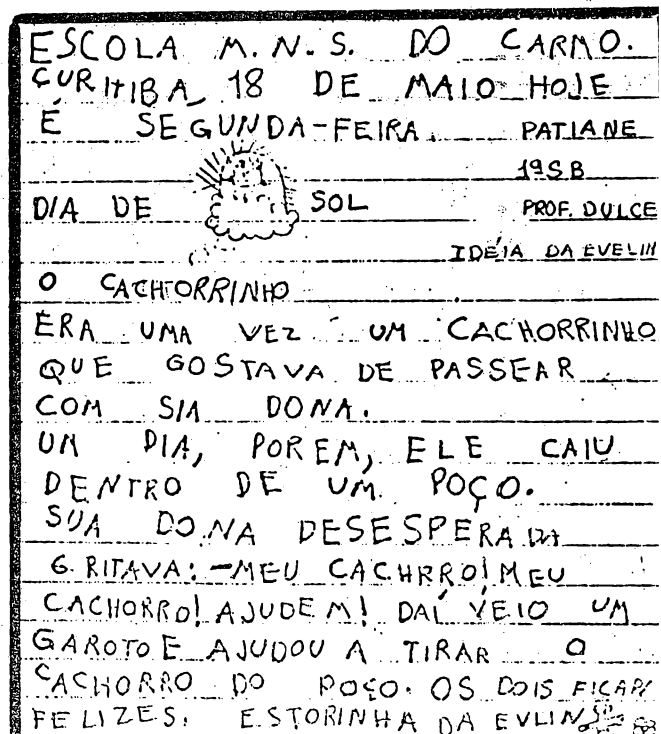 ESCOLA M.N.S. DO CARMO.
CURITIBA, 18 DE MAIO HOJE
É SEGUNDA-FEIRA. PATIANE
1ªSB
DIA DE SOL PROF. DULCE
IDÉIA DA EVELIN
O CACHORRINHO
ERA UMA VEZ UM CACHORRINHO
QUE GOSTAVA DE PASSEAR
COM SUA DONA.
UM DIA, PORÉM, ELE CAIU
DENTRO DE UM POÇO.
SUA DONA DESESPERADA
GRITAVA: -MEU CACHRRO! MEU
CACHORRO! AJUDEM! DAÍ VEIO UM
GAROTO E AJUDOU A TIRAR O
CACHORRO DO POÇO. OS DOIS
FELIZES. ESTORINHA DA EVLIN